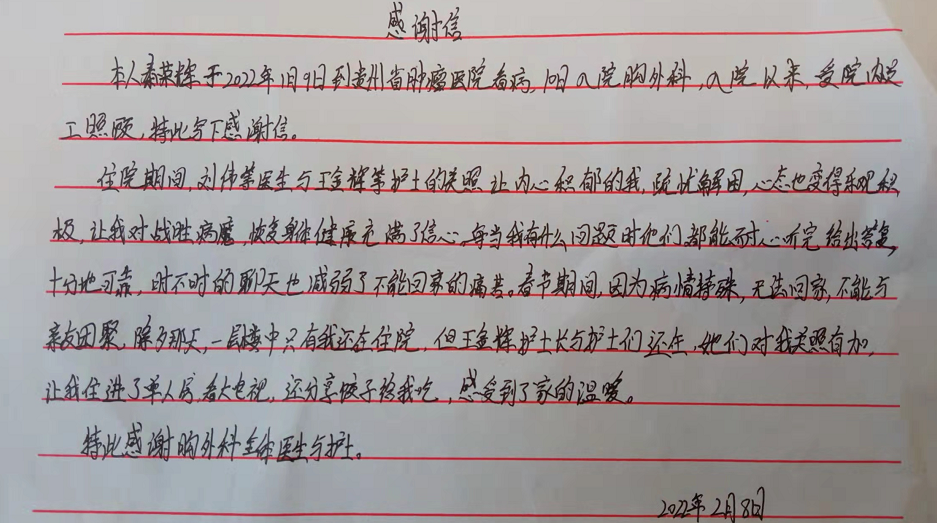 感谢信
本人秦荣辉于2022年1月9日到贵州省肿瘤医院看病,10日入院胸外科,入院以来,受院内员
工照顾,特此写下感谢信。
住院期间,刘伟等医生与王金辉等护士的关照让内心积郁的我,疏忧解困,心态也变得乐观积
极,让我对战胜病魔,恢复身体健康充满了信心。每当我有什么问题时他们都能耐心听完给出答复,
十分地可靠,时不时的聊天也减弱了不能回家的痛苦。春节期间,因为病情特殊,无法回家,不能与
亲友团聚,除夕那天,一层楼中只有我还在住院,但王金辉护士长与护士们还在,她们对我关照有加,
让我住进了单人房,看大电视,还分享饺子给我吃,感受到了家的温暖。
特此感谢胸外科全体医生与护士。
2022年2月8日